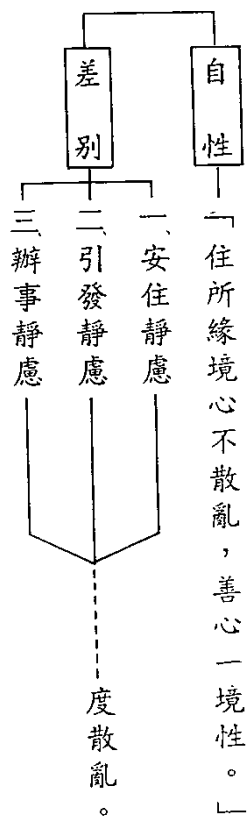 自性
「住所緣境心不散亂，善心一境性。」
差別
一、安住靜慮
二、引發靜慮
三、辦事靜慮
度散亂。